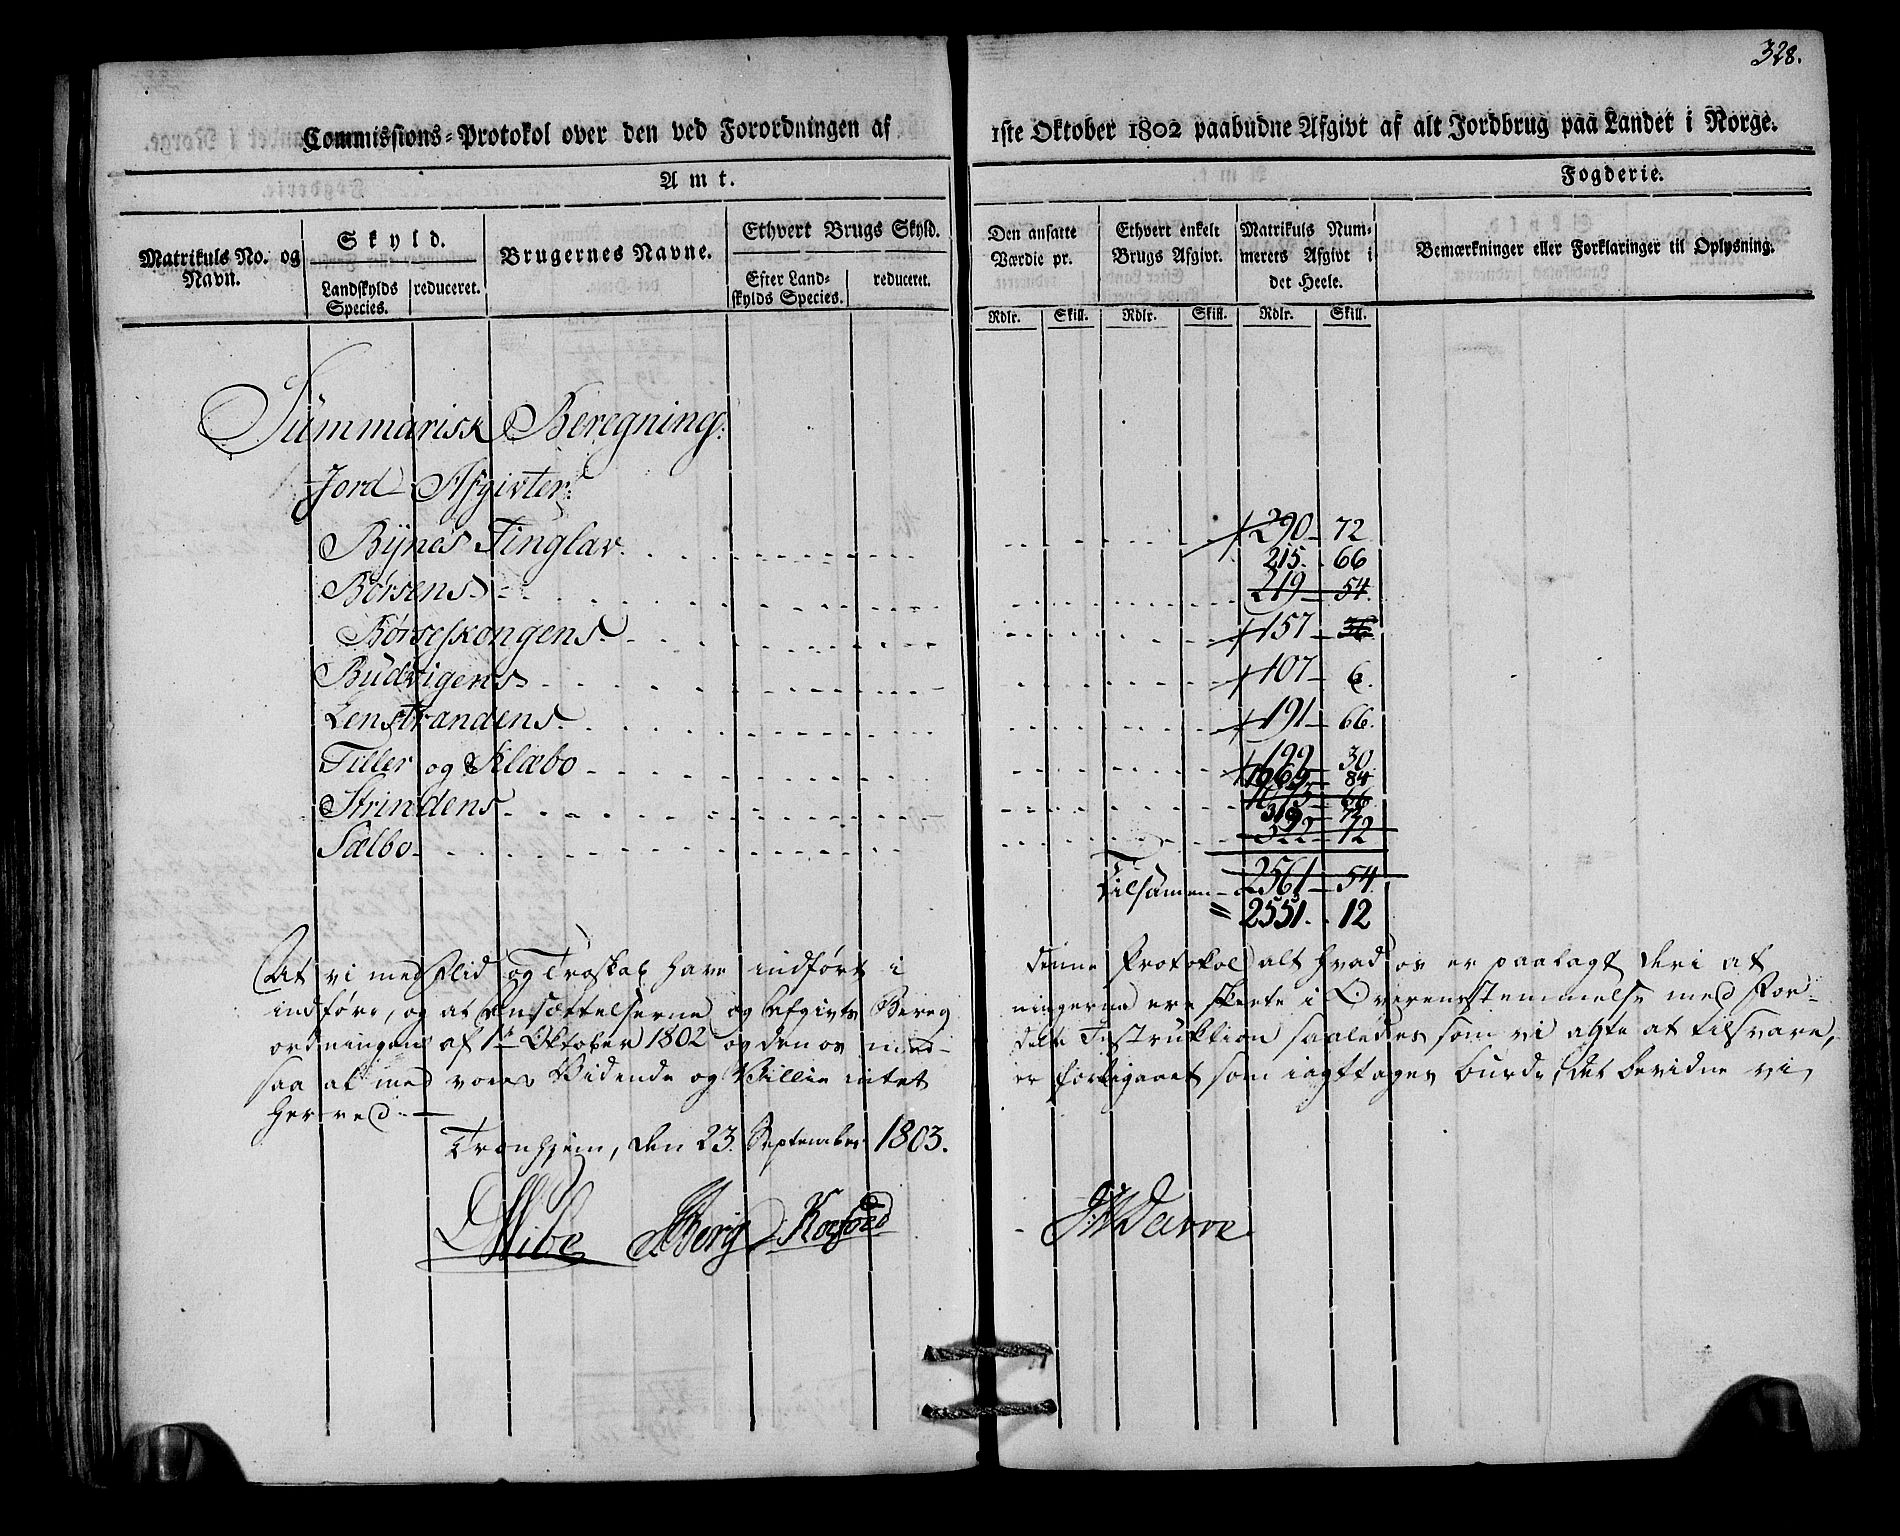 328.
Commissions-Protokol over den ved Forordningen af 1ste Oktober 1802 paabudne Afgivt af alt Jordbrug paa Landet i Norge.
Amt. Fogderie.
Matrikuls No. og Navn.
Skyld.
Landskylds Species.
reduceret.
Brugernes Navne.
Ethvert Brugs Skyld.
Efter Landskylds Species.
reduceret.
Den ansatte Værdie pr.
Ethvert enkelt Brugs Afgivt.
Matrikuls Nummerets Afgivt i det Heele.
Bemærkninger eller Forklaringer til Oplysning.
Rdlr. Skill. Rdlr. Skill. Rdlr. Skill.
Summarisk Beregning:
Jord-Afgivter:
Bÿnes Tinglav. 290 72
215. 66
Børsens 219 54.
Børseskongens 157 36
Budvigens 107 6.
Lenstrandens 191 66.
Tiller og Klæbo 199 30
1065 84
Strindens 1073 66
318 72
Sælbo 322 12
Tilsamen 2561 54
" 2551. 12
At vi med Flid og Troskab have indført i denne Protokol alt hvad os er paalagt deri at
indføre, og at Ansættelserne og Afgivts Beregningerne ere skeete i Overensstemmelse med For-
ordningen af 1te Oktober 1802 og den os meddelte Instruktion saaledes som vi agte at tilsvare,
saa at med vores Vidende og Villie intet er forbigaaet som iagttages burde, det bevidne vi
herved.
Tronhjem, den 23. September 1803.
Wibe Berg Koefoed